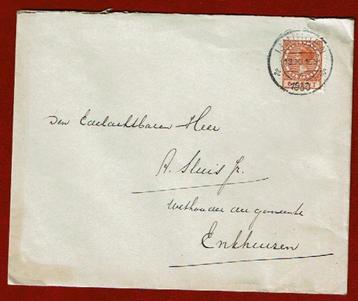 1930
Den Edelachtbaren Heer
A. Sluis Jr.
Wethouder der gemeente
Enkhuizen